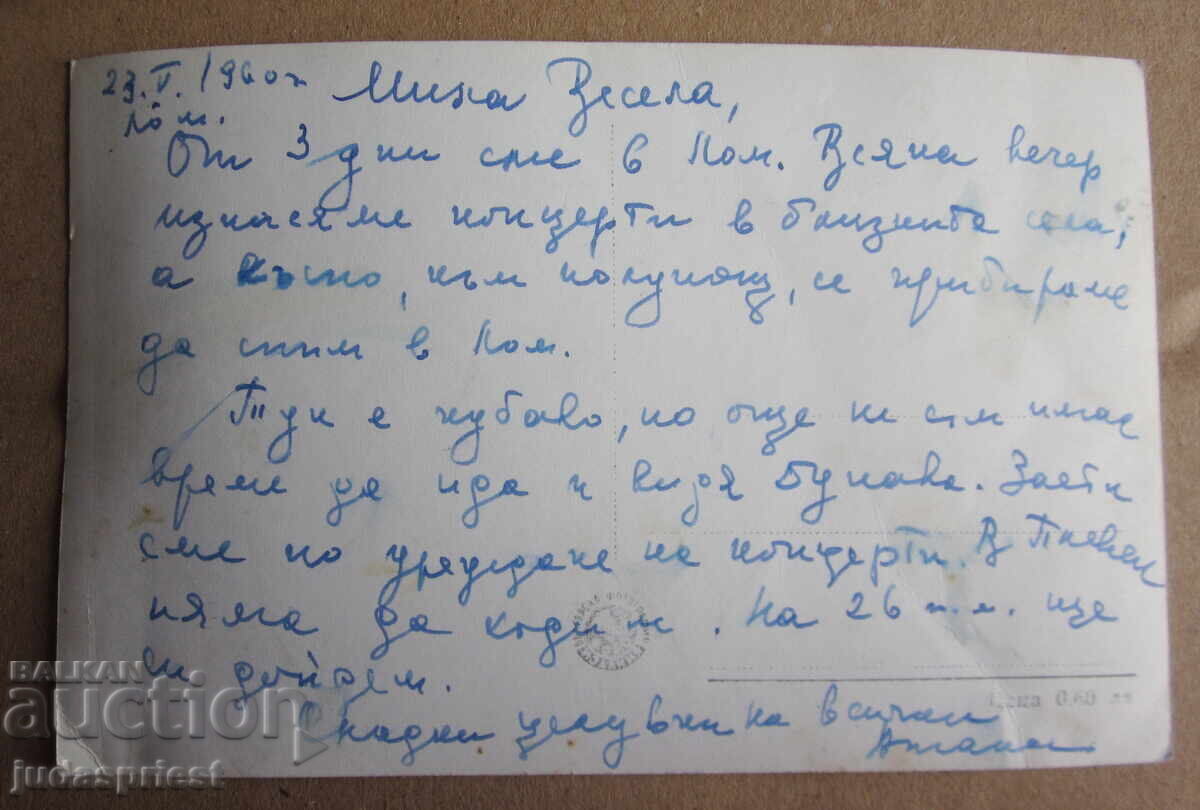 23.V./960г.
Лом.
Мила Весела,
От 3 дни сме в Лом. Всяка вечер
изнасяме концерти в близките села,
а късно, към полунощ, се прибираме
да спим в Лом.
Тук е хубаво, но още не съм имал
време да ида и видя Дунава. Заети
сме по уреждане на концерти. В Плевен
няма да ходим. На 26 т.м. ще
си дойдем.
Сладки целувки на всички
Атанас
Цена 0,60 лв
BALKAN
auction
judaspriest